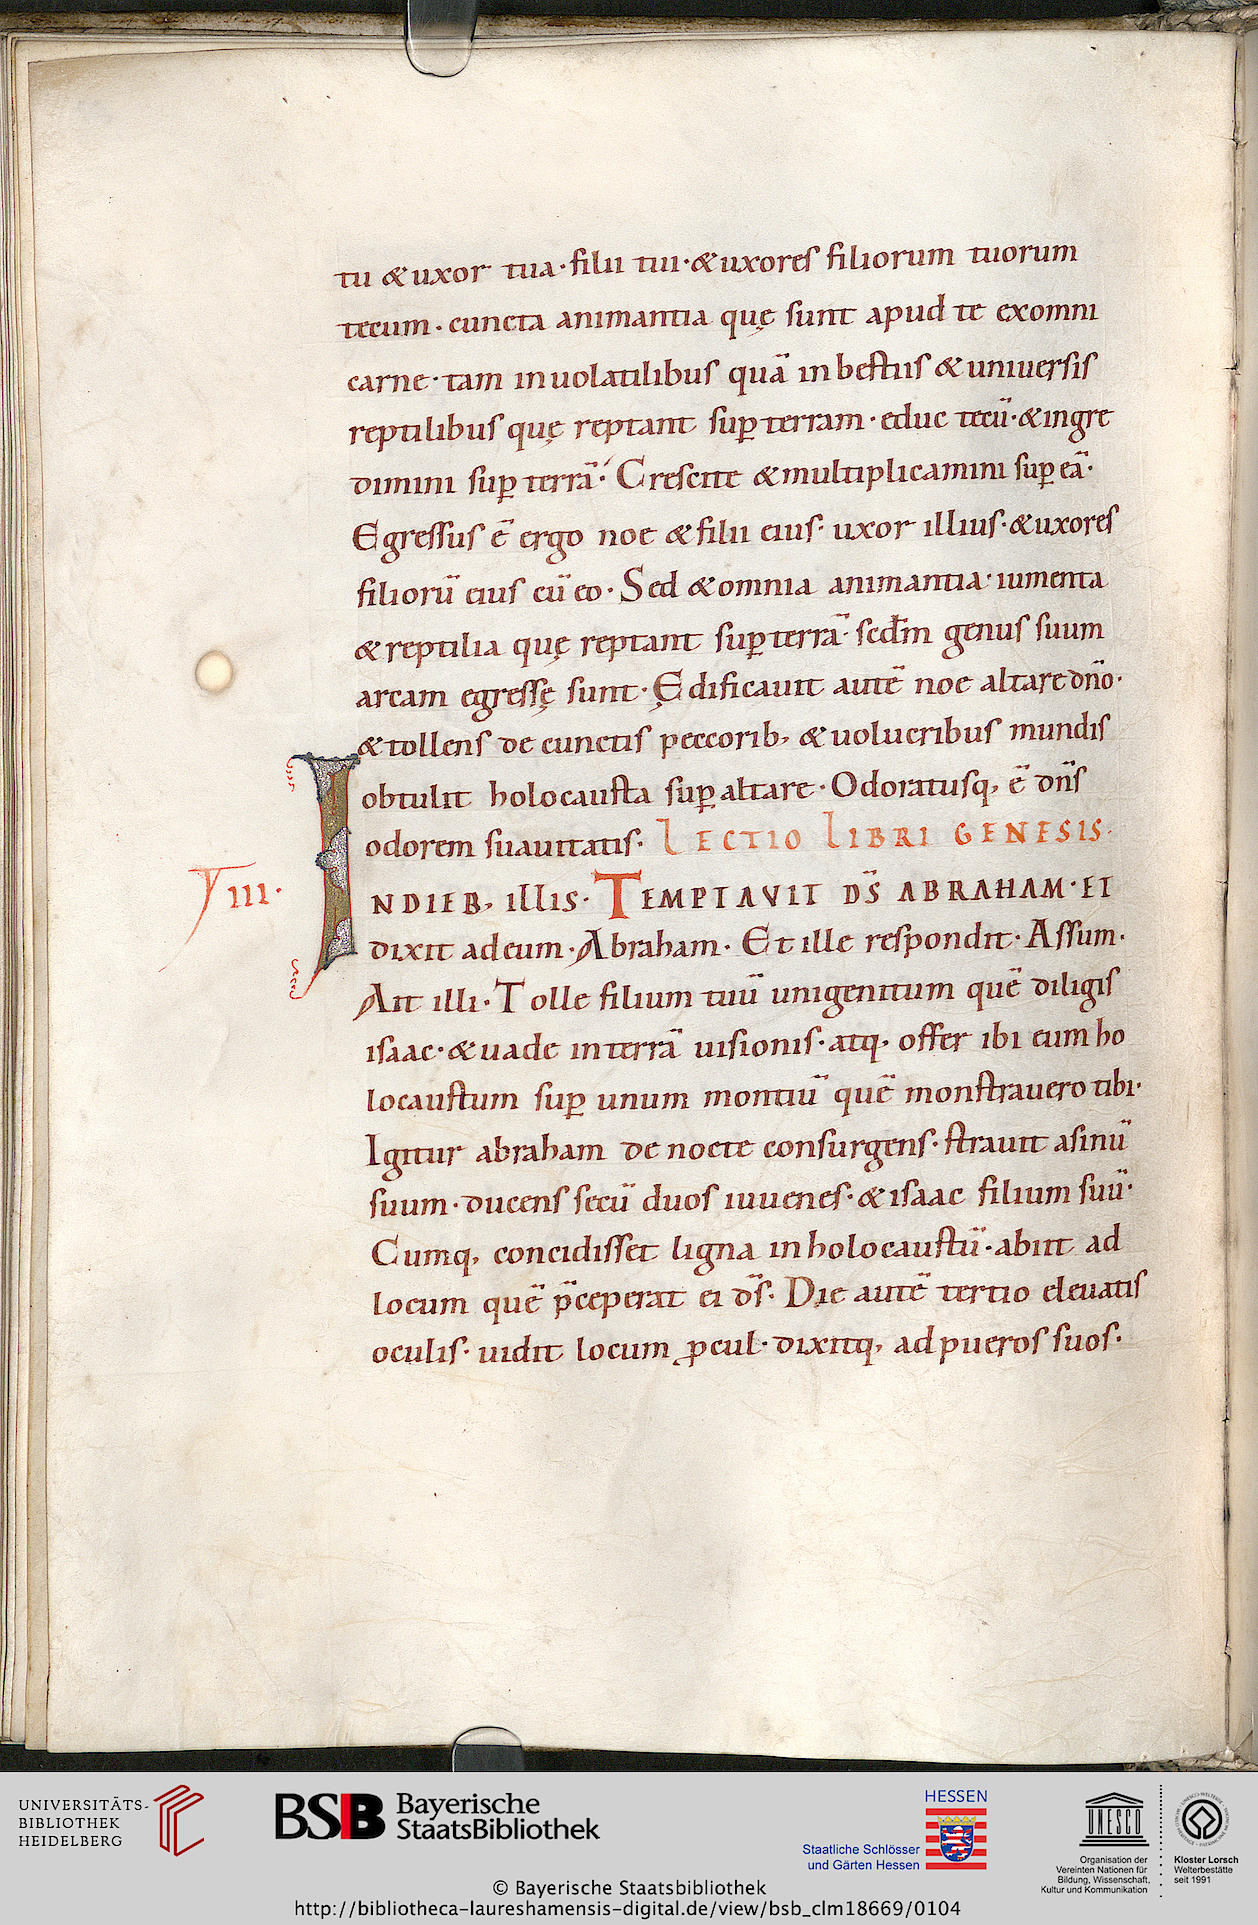 tu & uxor tua · filii tui · & uxores filiorum tuorum
tecum · cuncta animantia quę sunt apud te exomni
carne · tam inuolatilibus quā inbestiis & uniuersis
reptilibus quę reptant suꝑ terram · educ tecū · & ingre
dimini suꝑ terrā · Crescite & multiplicamini suꝑ eā ·
Egressus ē ergo noe & filii eius · uxor illius · & uxores
filiorū eius cū eo · Sed & omnia animantia · iumenta
& reptilia quę reptant suꝑ terrā · scdm̄ genus suum
arcam egressę sunt · Ędificauit autē noe altare dn̄o ·
& tollens de cunctis peccorib; & uolucribus mundis
obtulit holocausta suꝑ altare · Odoratusq; ē dn̄s
odorem suauitatis · LECTIO LIBRI GENESIS ·
III ·
INDIEB; illis · TEMPTAVIT DS̄ ABRAHAM · ET
dixit adeum · Abraham · Et ille respondit · Assum ·
Ait illi · Tolle filium tuū unigenitum quē diligis
isaac · & uade interrā uisionis · atq; offer ibi eum ho
locaustum suꝑ unum montiū quē monstrauero tibi ·
Igitur abraham de nocte consurgens · strauit asinū
suum · ducens secū duos iuuenes · & isaac filium suū ·
Cumq; concidisset ligna inholocaustū · abiit ad
locum quē p̄ceperat ei ds̄ · Die autē tertio eleuatis
oculis · uidit locum ꝓcul · dixitq; ad pueros suos ·
UNIVERSITÄTS-
BIBLIOTHEK
HEIDELBERG
BSB Bayerische
StaatsBibliothek
HESSEN
Staatliche Schlösser
und Gärten Hessen
UNESCO
Organisation der
Vereinten Nationen für
Bildung, Wissenschaft,
Kultur und Kommunikation
Kloster Lorsch
Welterbestätte
seit 1991
© Bayerische Staatsbibliothek
http://bibliotheca-laureshamensis-digital.de/view/bsb_clm18669/0104